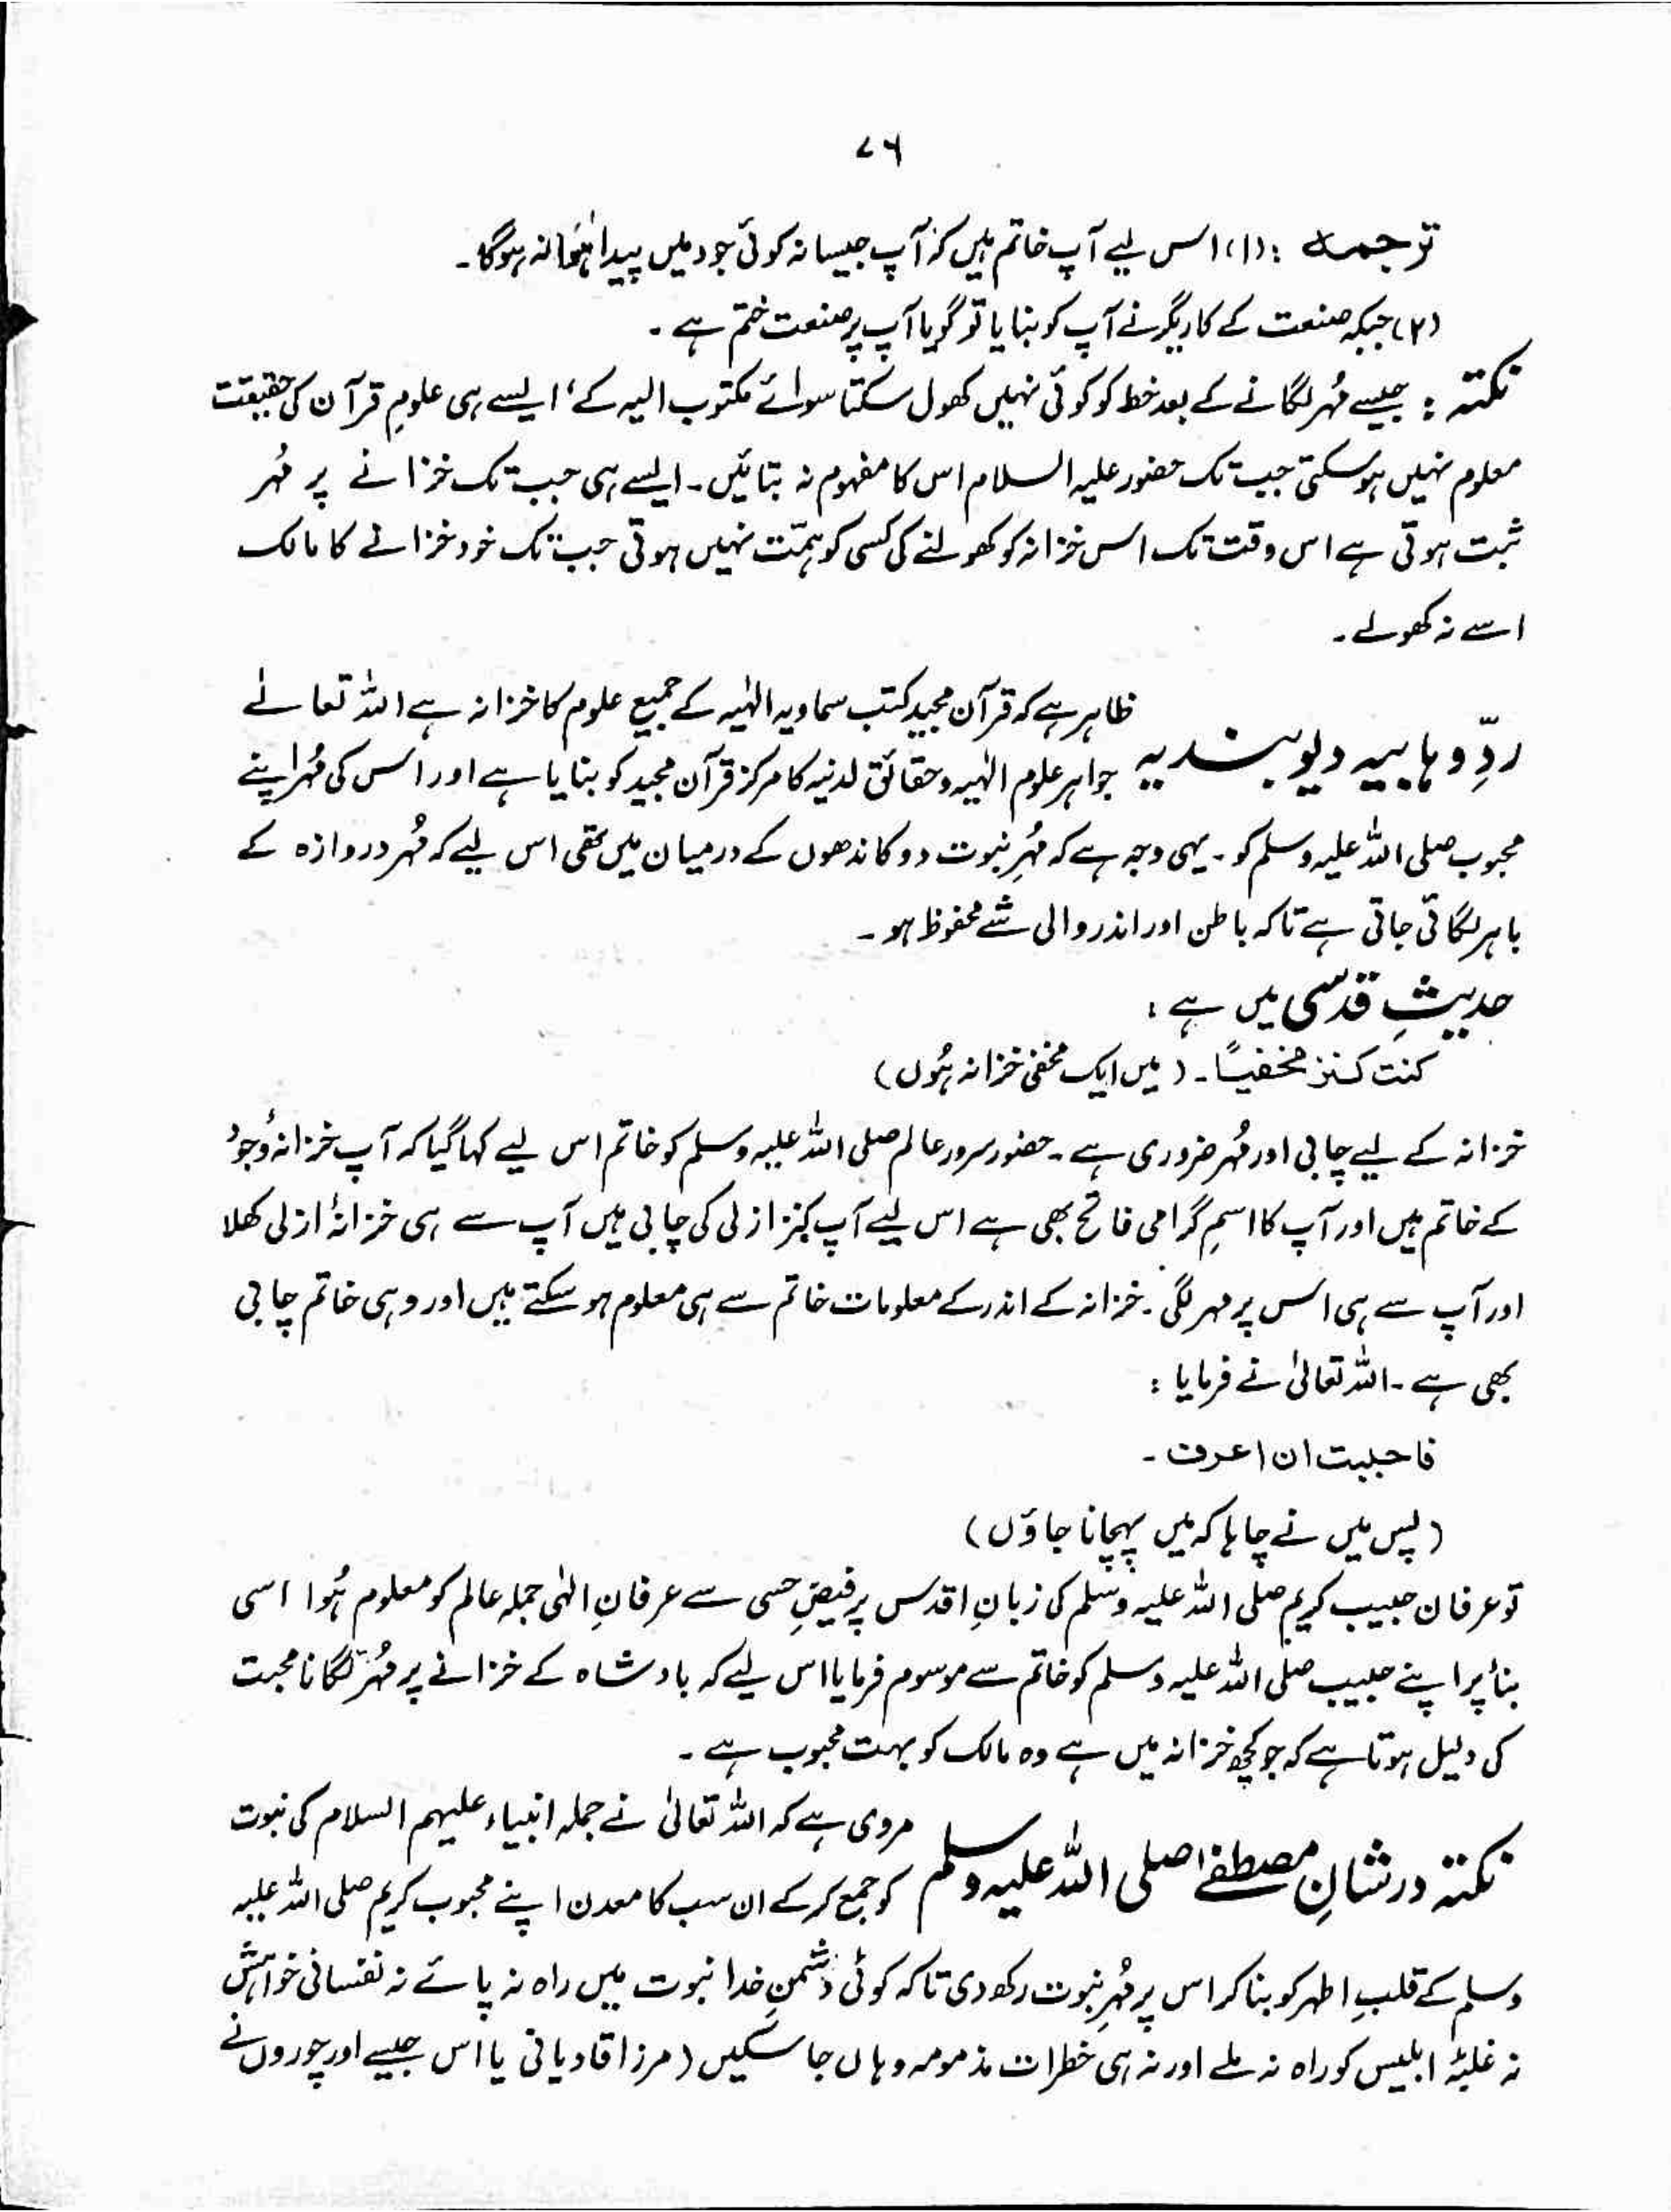 ۷۶
ترجمہ : (۱) اس لیے آپ خاتم ہیں کہ آپ جیسا نہ کوئی جود میں پیدا ہُوا نہ ہوگا۔
(۲) جبکہ صنعت کے کاریگر نے آپ کو بنایا تو گویا آپ پر صنعت ختم ہے ۔
نکتہ : جیسے مُہر لگانے کے بعد خط کو کوئی نہیں کھول سکتا سوائے مکتوب الیہ کے ، ایسے ہی علومِ قرآن کی حقیقت
معلوم نہیں ہوسکتی جب تک حضور علیہ السلام اس کا مفہوم نہ بتائیں۔ ایسے ہی جب تک خزانے پر مُہر
ثبت ہوتی ہے اس وقت تک اس خزانہ کو کھولنے کی کسی کو ہمّت نہیں ہوتی جب تک خود خزانے کا مالک
اسے نہ کھولے ۔
ردِّ وہابیہ دیوبندیہ ظاہر ہے کہ قرآن مجید کتب سماویہ الٰہیہ کے جمیع علوم کا خزانہ ہے اللہ تعالےٰ نے
جواہر علوم الٰہیہ و حقائق لدنیہ کا مرکز قرآن مجید کو بنایا ہے اور اس کی مُہر اپنے
محبوب صلی اللہ علیہ وسلم کو ۔ یہی وجہ ہے کہ مُہرِ نبوت دو کاندھوں کے درمیان میں تھی اس لیے کہ مُہر دروازہ کے
باہر لگائی جاتی ہے تاکہ باطن اور اندر والی شے محفوظ ہو ۔
حدیثِ قدسی میں ہے :
کنت کنز مخفیًا ۔ ( میں ایک مخفی خزانہ ہُوں )
خزانہ کے لیے چابی اور مُہر ضروری ہے ۔ حضور سرور عالم صلی اللہ علیہ وسلم کو خاتم اس لیے کہا گیا کہ آپ خزانۂ وُجود
کے خاتم ہیں اور آپ کا اسمِ گرامی فاتح بھی ہے اس لیے آپ کنز ازلی کی چابی ہیں آپ سے ہی خزانۂ ازلی کھلا
اور آپ سے ہی اس پر مہر لگی ۔ خزانہ کے اندر کے معلومات خاتم سے ہی معلوم ہوسکتے ہیں اور وہی خاتم چابی
بھی ہے ۔ اللہ تعالیٰ نے فرمایا :
فاحببت ان اعرف ۔
( پس میں نے چاہا کہ میں پہچانا جاؤں )
تو عرفان حبیب کریم صلی اللہ علیہ وسلم کی زبانِ اقدس پر فیضِ حسی سے عرفانِ الٰہی جملہ عالم کو معلوم ہُوا اسی
بنأ پر اپنے حبیب صلی اللہ علیہ وسلم کو خاتم سے موسوم فرمایا اس لیے کہ بادشاہ کے خزانے پر مُہر لگانا محبت
کی دلیل ہوتا ہے کہ جو کچھ خزانہ میں ہے وہ مالک کو بہت محبوب ہے ۔
نکتہ در شانِ مصطفےٰ صلی اللہ علیہ وسلم مروی ہے کہ اللہ تعالیٰ نے جملہ انبیاء علیہم السلام کی نبوت
کو جمع کر کے ان سب کا معدن اپنے محبوب کریم صلی اللہ علیہ
وسلم کے قلبِ اطہر کو بنا کر اس پر مُہرِ نبوت رکھ دی تاکہ کوئی دشمنِ خدا نبوت میں راہ نہ پائے نہ نفسانی خواہش
نہ غلبۂ ابلیس کو راہ نہ ملے اور نہ ہی خطرات مذمومہ وہاں جاسکیں ( مرزا قادیانی یا اس جیسے اور چوروں نے